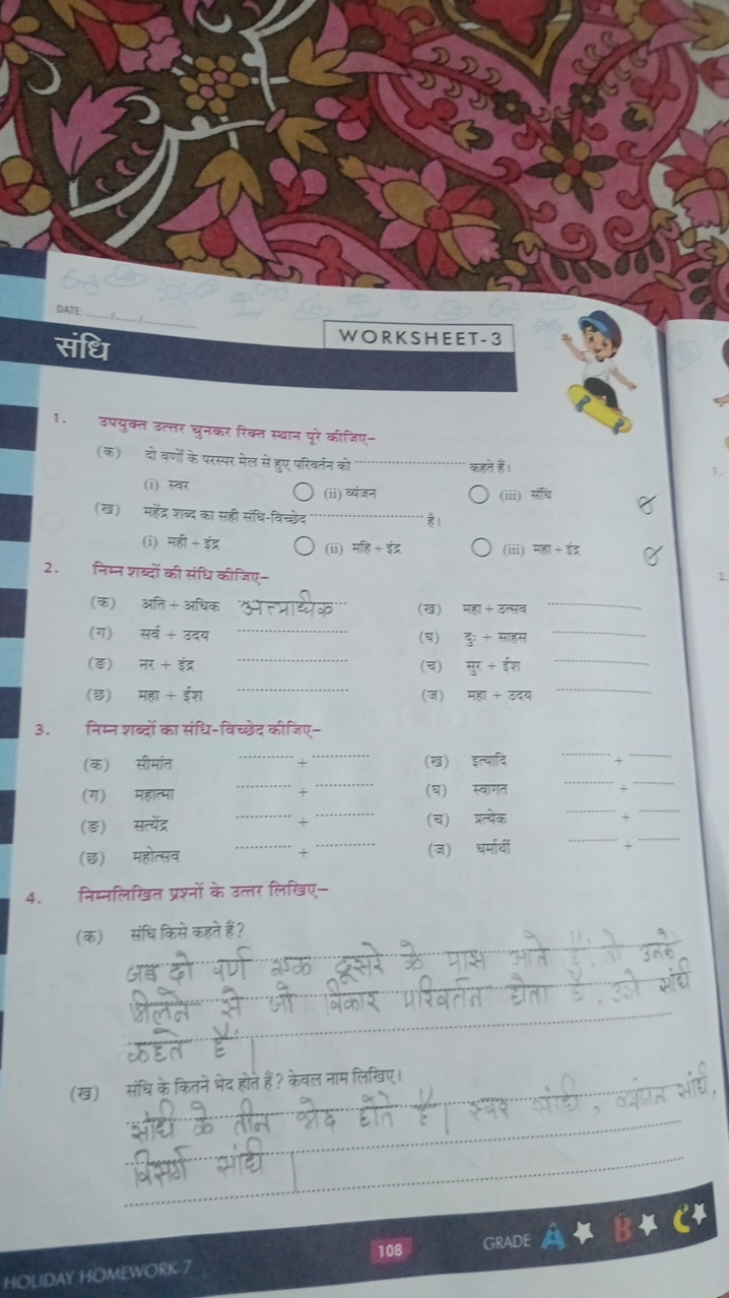 DATE: ___/___/______
WORKSHEET-3
संधि
1. उपयुक्त उत्तर चुनकर रिक्त स्थान पूरे कीजिए–
(क) दो वर्णों के परस्पर मेल से हुए परिवर्तन को ........................ कहते हैं।
(i) स्वर (ii) व्यंजन (iii) संधि
(ख) महेंद्र शब्द का सही संधि-विच्छेद ........................ है।
(i) मही + इंद्र (ii) महि + इंद्र (iii) महा + इंद्र
2. निम्न शब्दों की संधि कीजिए–
(क) अति + अधिक (ख) महा + उत्सव ........................
(ग) सर्व + उदय ........................ (घ) दुः + साहस ........................
(ङ) नर + इंद्र ........................ (च) सुर + ईश ........................
(छ) महा + ईश ........................ (ज) महा + उदय ........................
3. निम्न शब्दों का संधि-विच्छेद कीजिए–
(क) सीमांत ............ + ............ (ख) इत्यादि ............ + ............
(ग) महात्मा ............ + ............ (घ) स्वागत ............ + ............
(ङ) सत्येंद्र ............ + ............ (च) प्रत्येक ............ + ............
(छ) महोत्सव ............ + ............ (ज) धर्मार्थी ............ + ............
4. निम्नलिखित प्रश्नों के उत्तर लिखिए–
(क) संधि किसे कहते हैं?
जब दो वर्ण एक दूसरे के पास आते हैं, तो उनके
मिलने से जो विकार परिवर्तन होता है, उसे सांधि
कहते हैं।
(ख) संधि के कितने भेद होते हैं? केवल नाम लिखिए।
सांधि के तीन भेद होते हैं। स्वर सांधि, व्यंजन सांधि,
विसर्ग सांधि।
HOLIDAY HOMEWORK-7 108 GRADE A B C